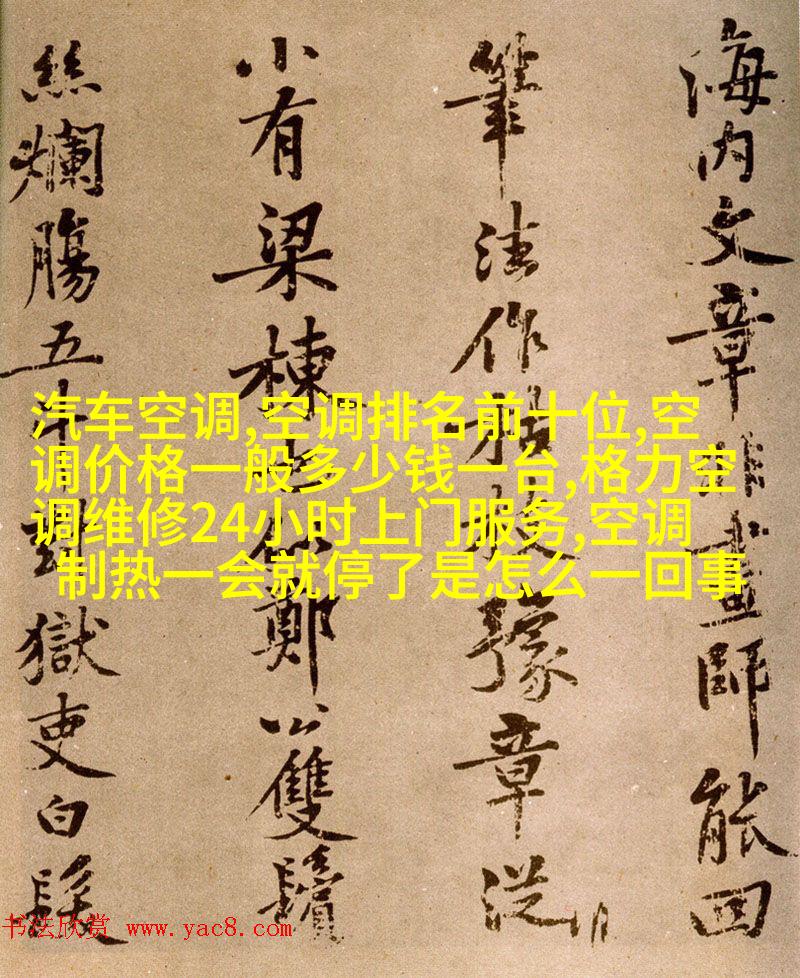 海內文章非畫師能回
筆法作枯枝豫章從
小有梁棟也似鄭公雙鬢
絲爛腸五斗對獄吏白髮
汽车空调,空调排名前十位,空
调价格一般多少钱一台,格力空
调维修24小时上门服务,空调
制热一会就停了是怎么一回事
书法欣赏 www.yac8.com